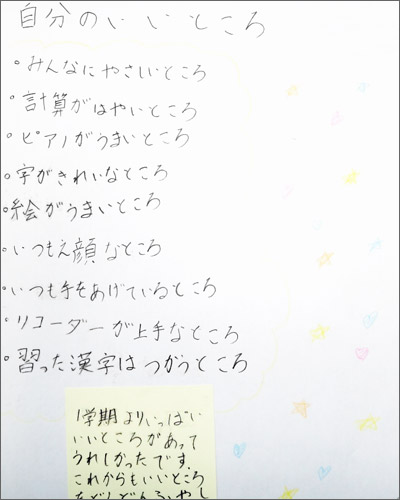 自分のいいところ
・みんなにやさしいところ
・計算がはやいところ
・ピアノがうまいところ
・字がきれいなところ
・絵がうまいところ
・いつもえ顔なところ
・いつも手をあげているところ
・リコーダーが上手なところ
・習った漢字はつかうところ
1学期よりいっぱい
いいところがあって
うれしかったです。
これからもいいところ
をどんどんふやし